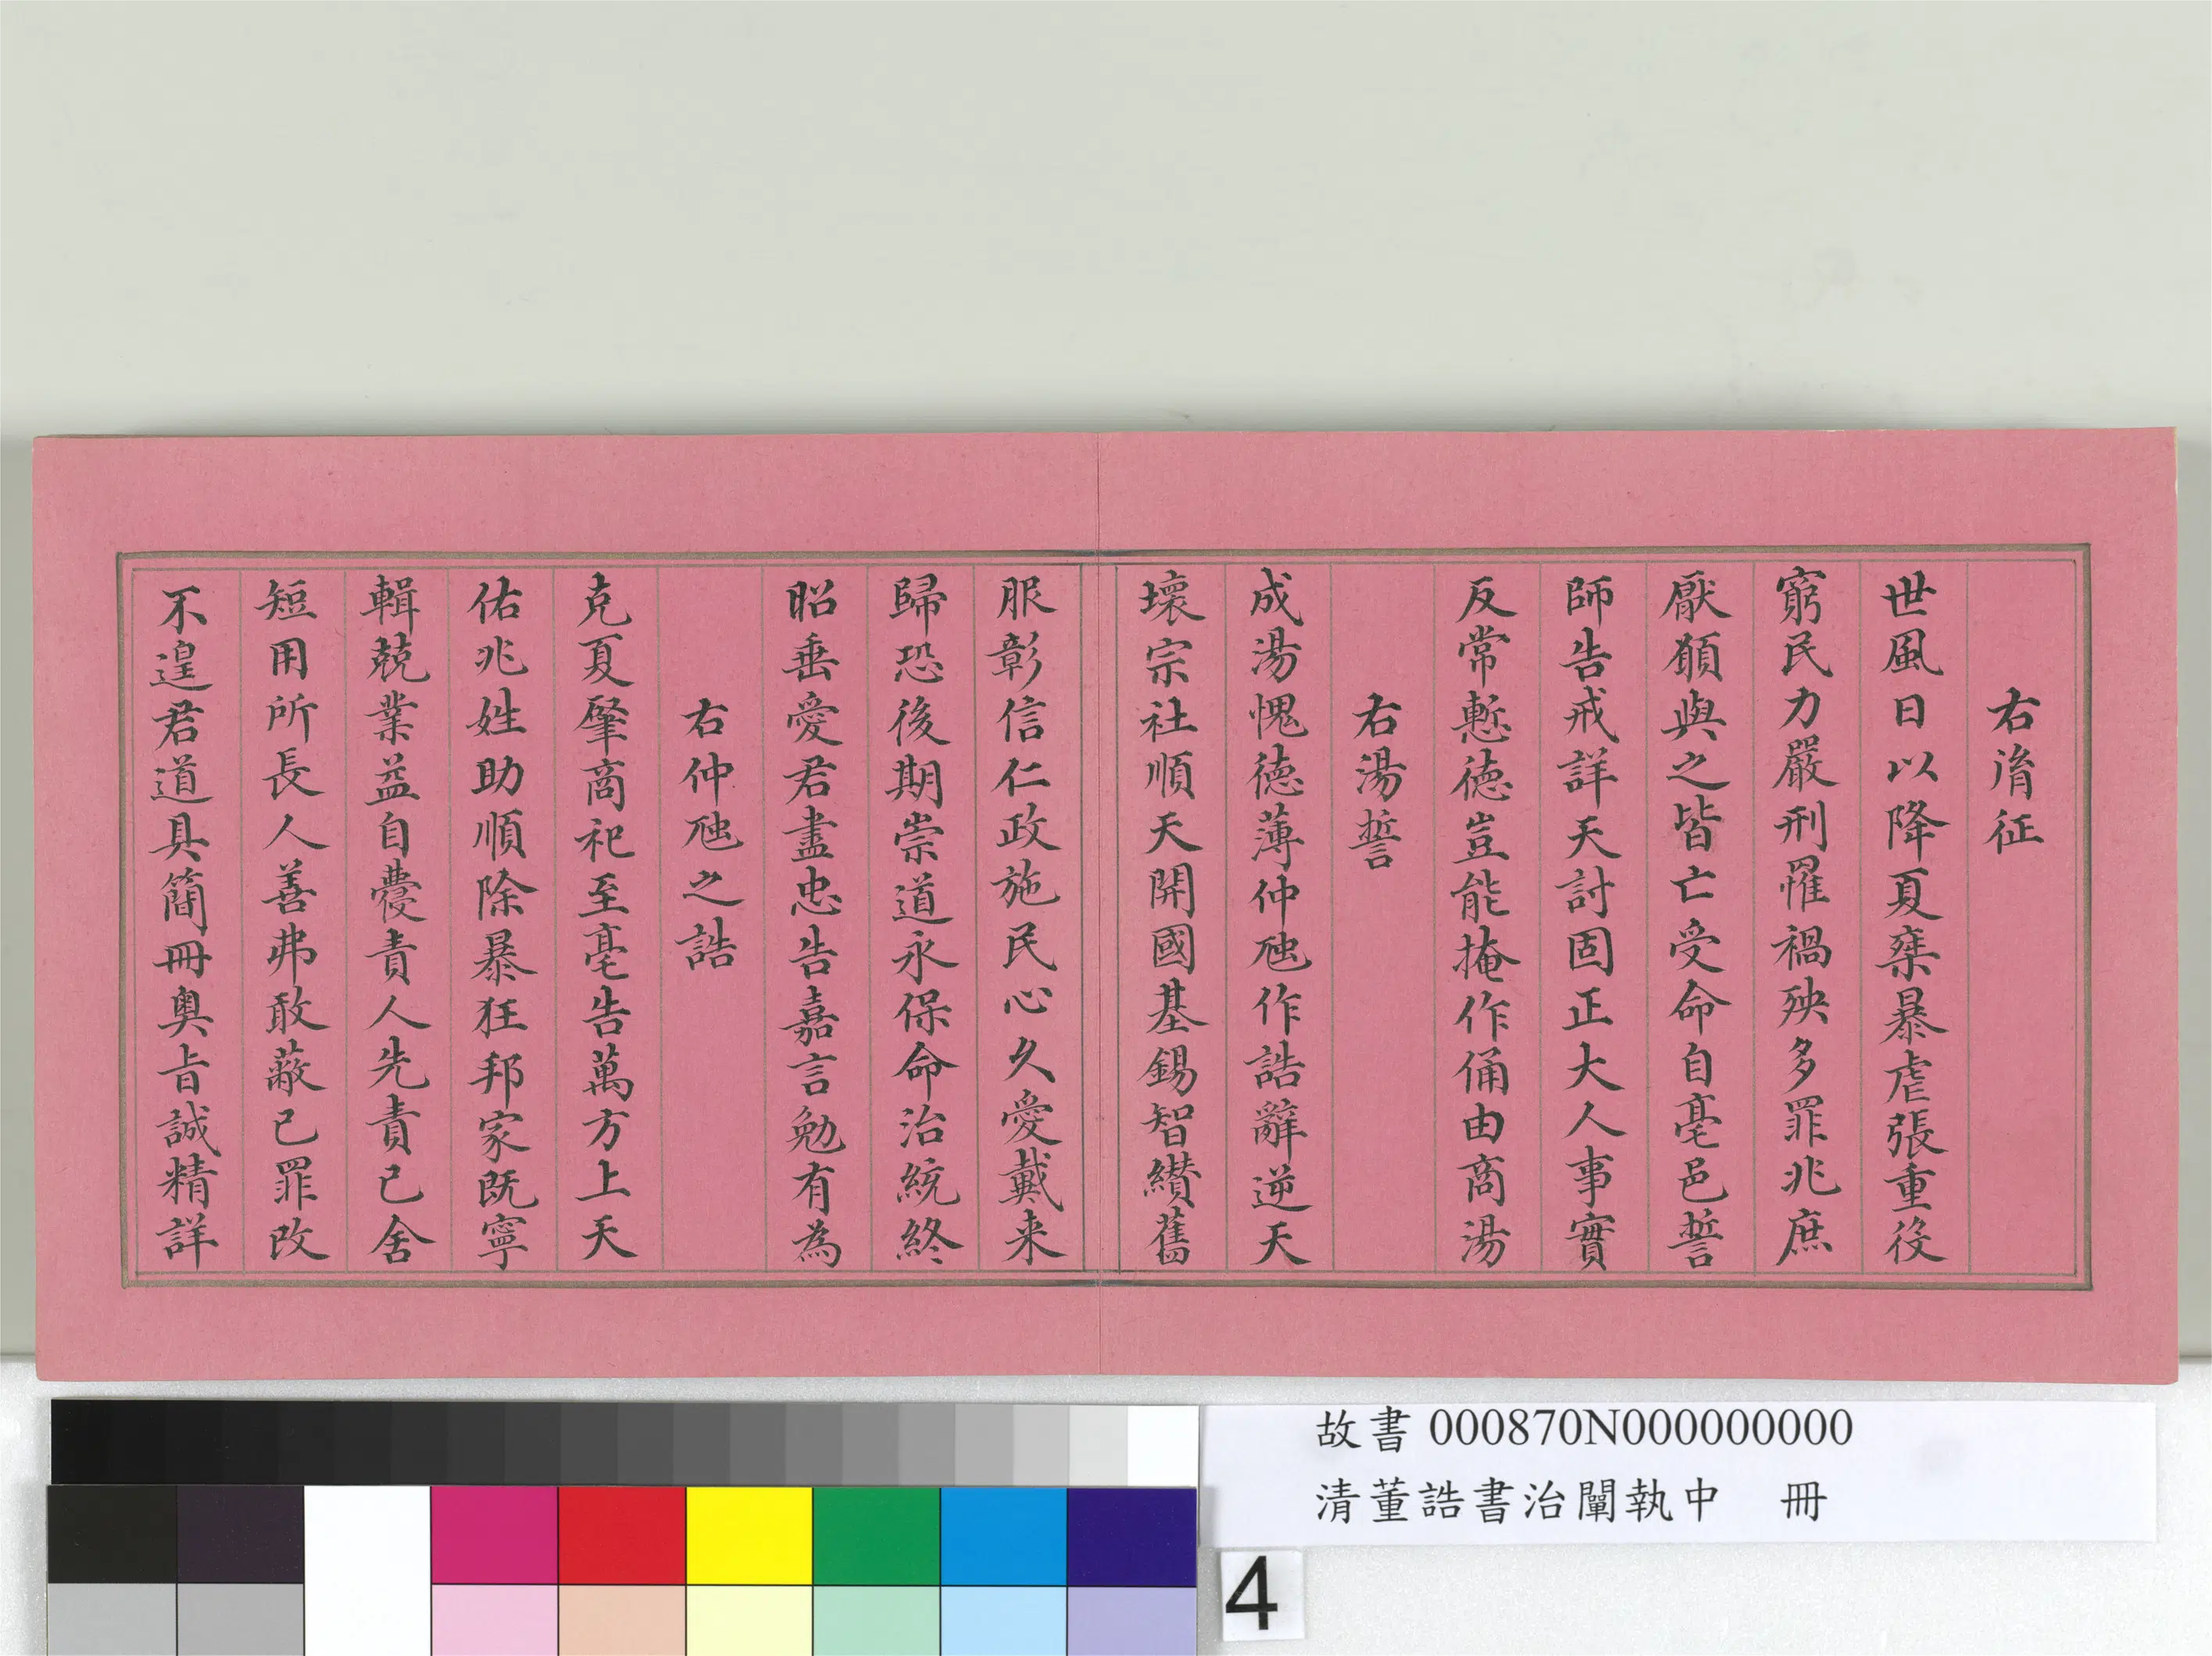 右胤征
世風日以降夏桀暴虐張重役
窮民力嚴刑罹禍殃多罪兆庶
厭願與之皆亡受命自亳邑誓
師告戒詳天討固正大人事實
反常慙德豈能掩作俑由商湯
右湯誓
成湯愧德薄仲虺作誥辭逆天
壞宗社順天開國基錫智纘舊
服彰信仁政施民心久愛戴来
歸恐後期崇道永保命治統終
昭垂愛君盡忠告嘉言勉有為
右仲虺之誥
克夏肇商祀至亳告萬方上天
佑兆姓助順除暴狂邦家既寧
輯兢業益自責人先責己舍
短用所長人善弗敢蔽己罪改
不遑君道具簡冊奥旨誠精詳
故書 000870N000000000
清董誥書治闡執中 冊
4